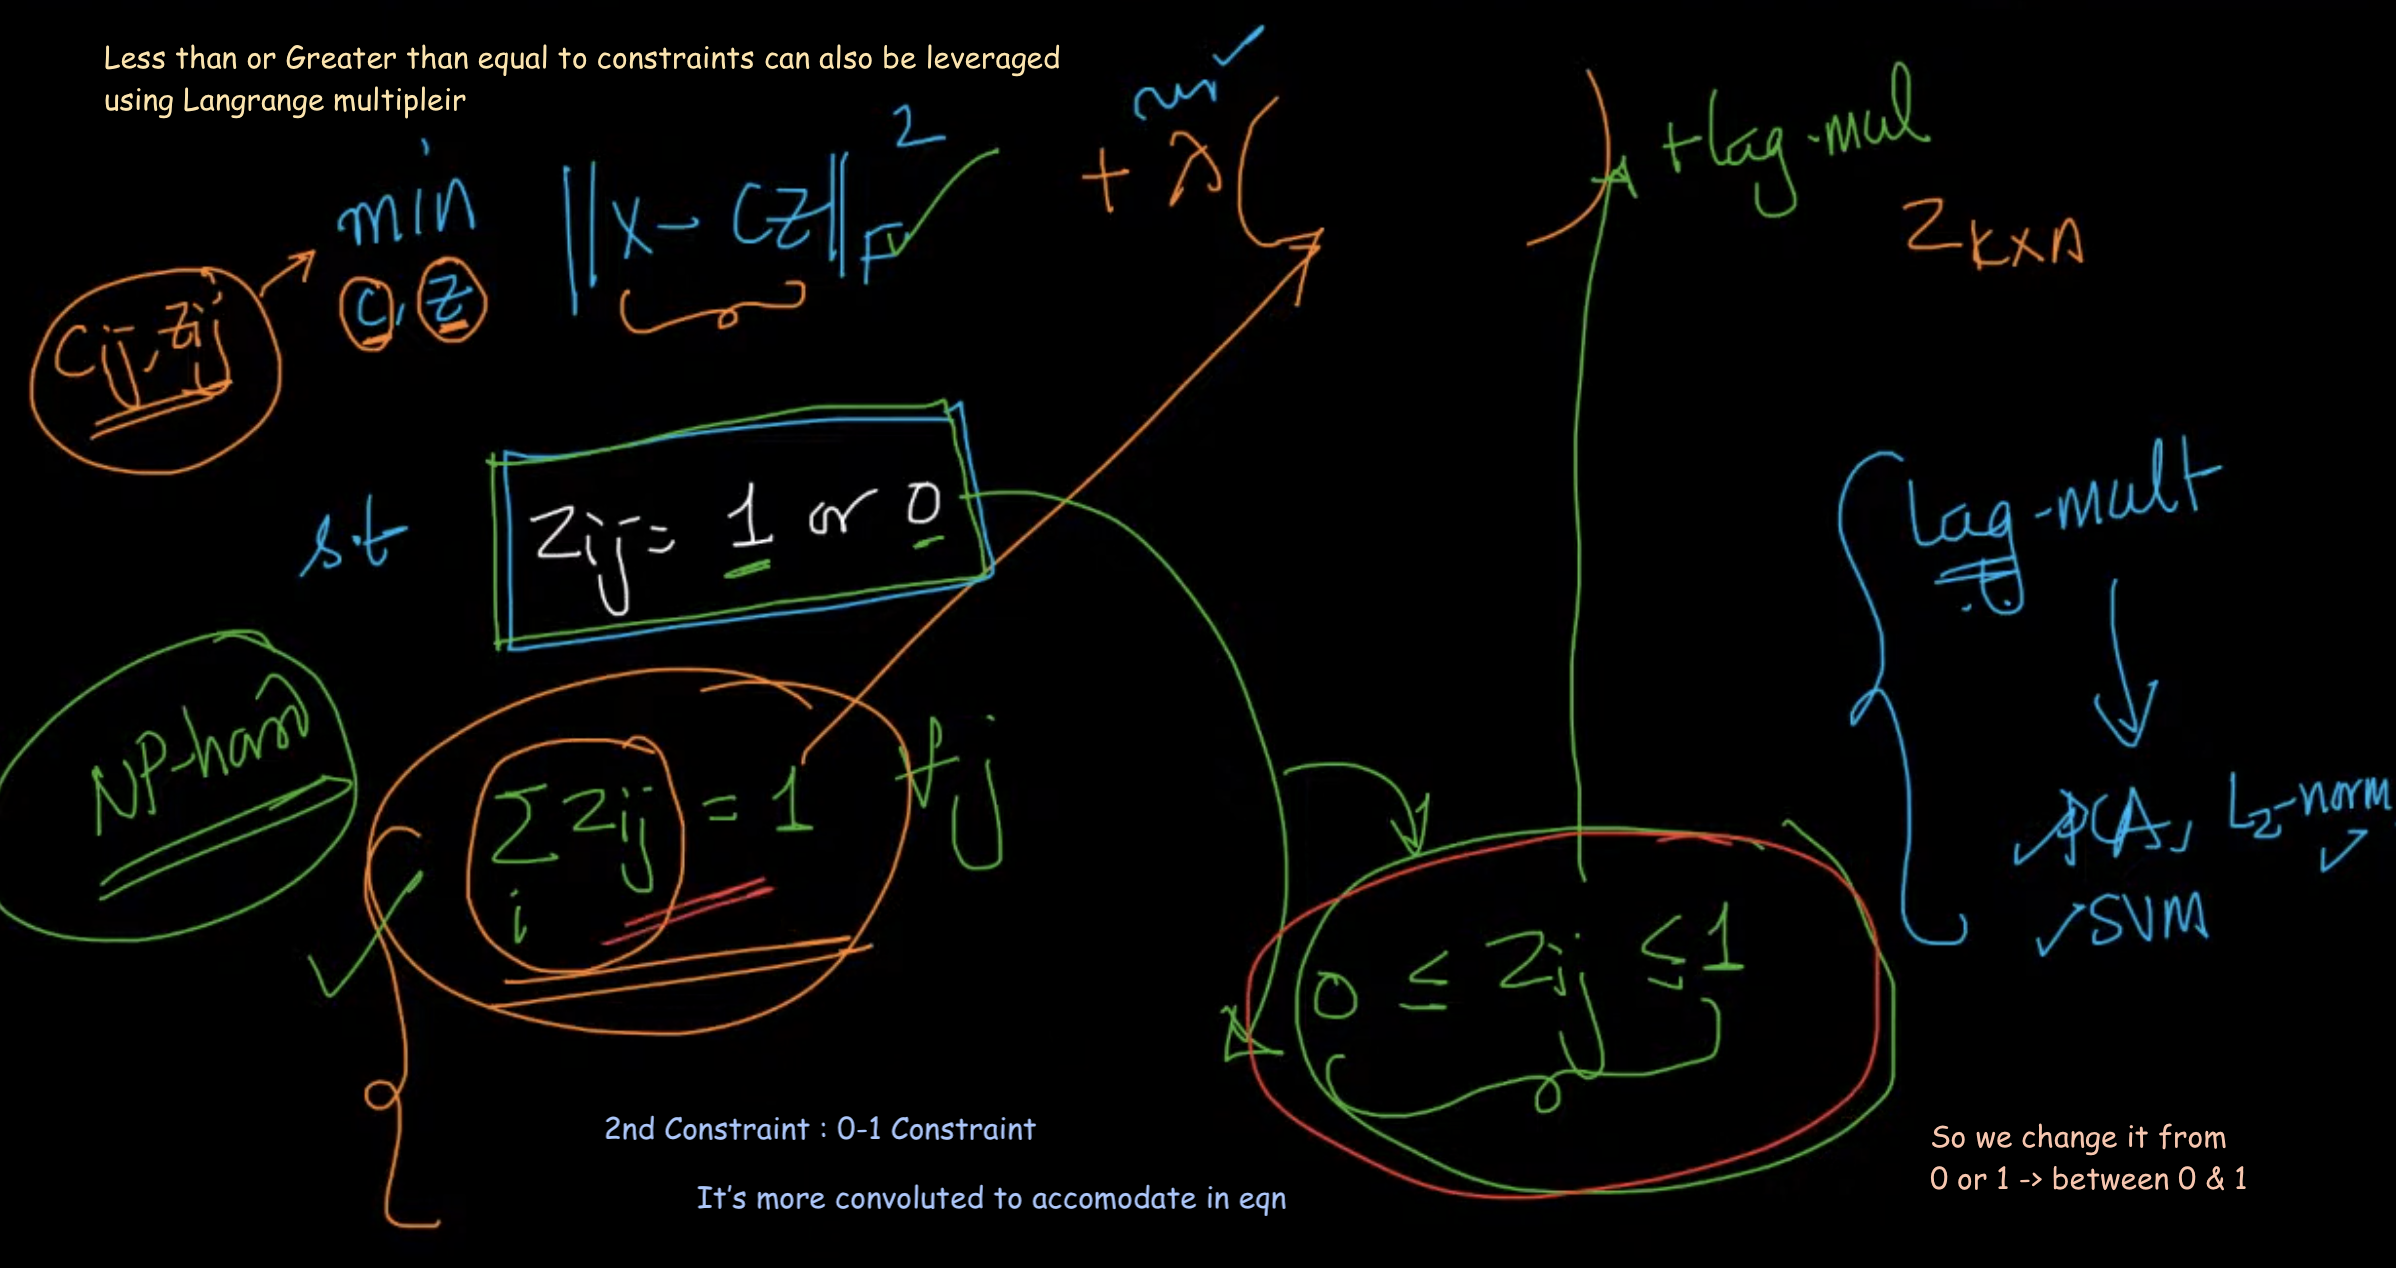 Less than or Greater than equal to constraints can also be leveraged
using Langrange multipleir
min ||X - CZ||F 2 + λ( ) + lag-mul
C, Z
Z K×n
Cij, Zij
st Zij = 1 or 0
lag-mult
NP-hard
∑ Zij = 1 ∀j
i
PCA, L2-norm
SVM
0 ≤ Zij ≤ 1
2nd Constraint : 0-1 Constraint
It's more convoluted to accomodate in eqn
So we change it from
0 or 1 -> between 0 & 1